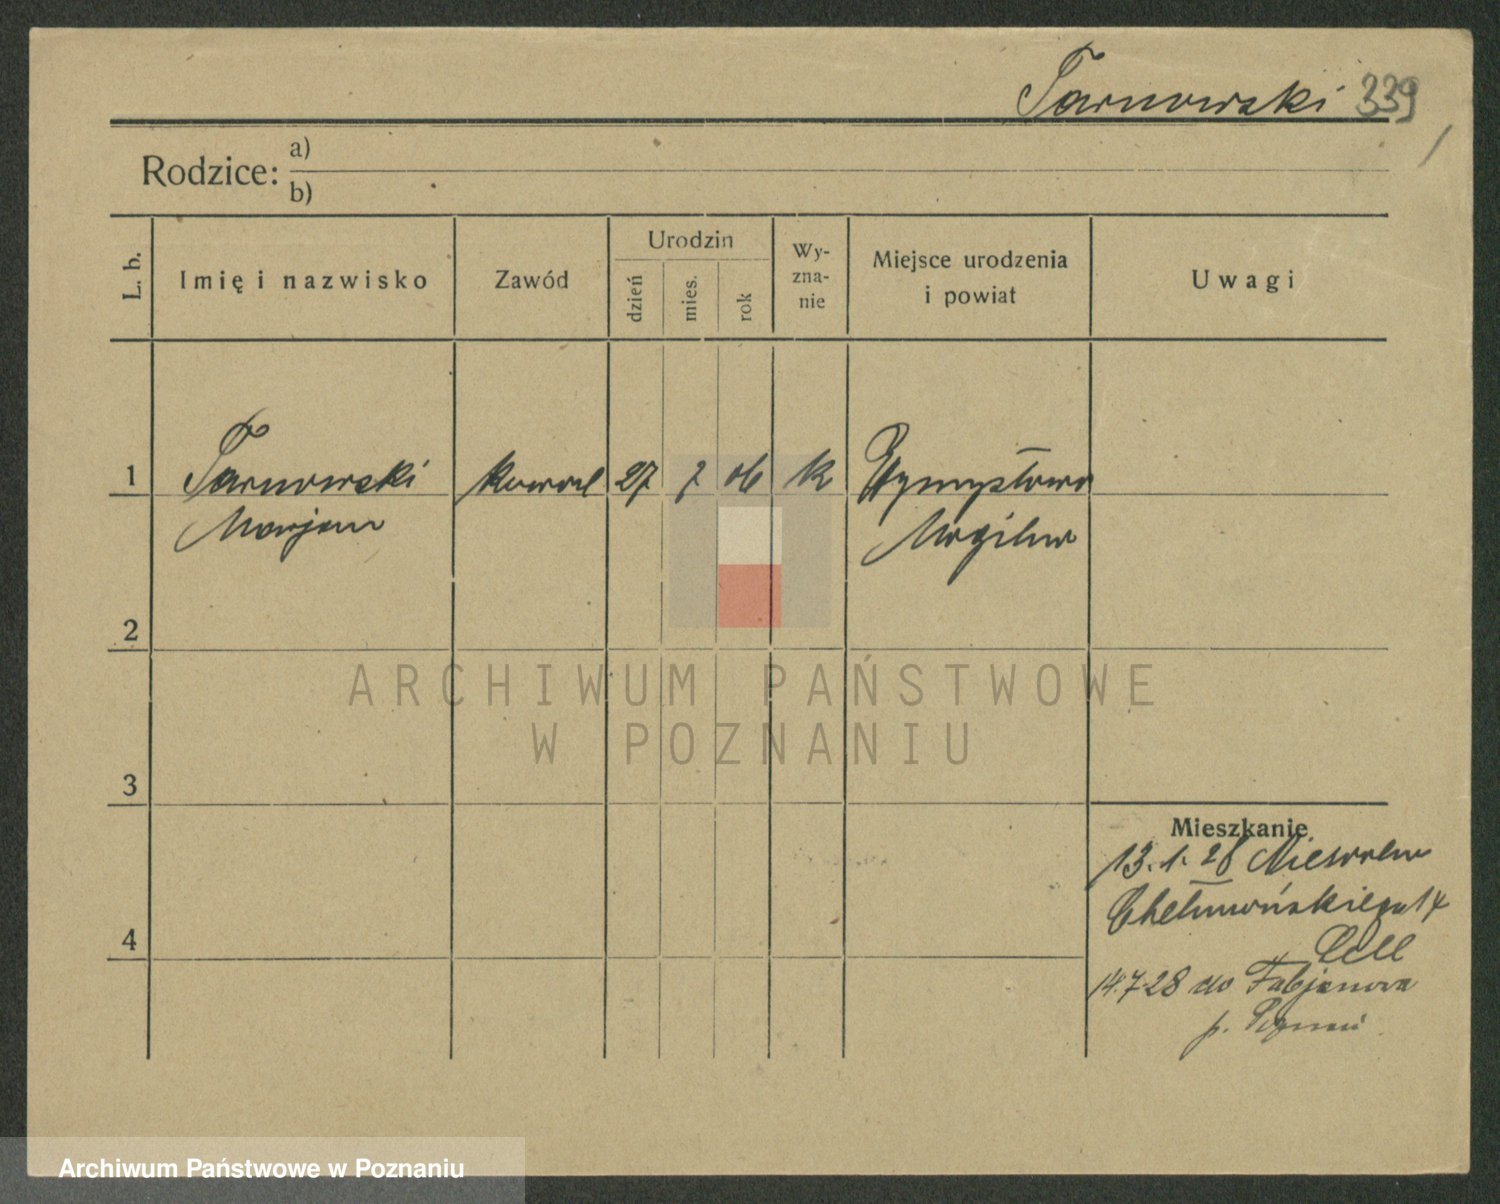 Tarnowski 339
Rodzice: a)
b)
L. b.
Imię i nazwisko
Zawód
Urodzin
dzień
mies.
rok
Wy-
zna-
nie
Miejsce urodzenia
i powiat
Uwagi
1
Tarnowski
Marjan
kowal
27
7
06
k
Wymysłowo
Mogilno
2
3
4
Mieszkanie
13.1.28
Chełmońskiego 14
14.7.28 do Fabjanowa
p. Poznań
ARCHIWUM PAŃSTWOWE
W POZNANIU
Archiwum Państwowe w Poznaniu